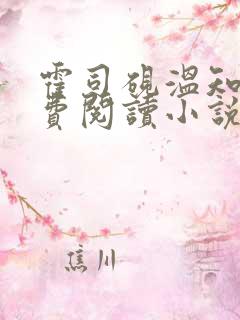 霍司硯溫知
費閱讀小說
焦川